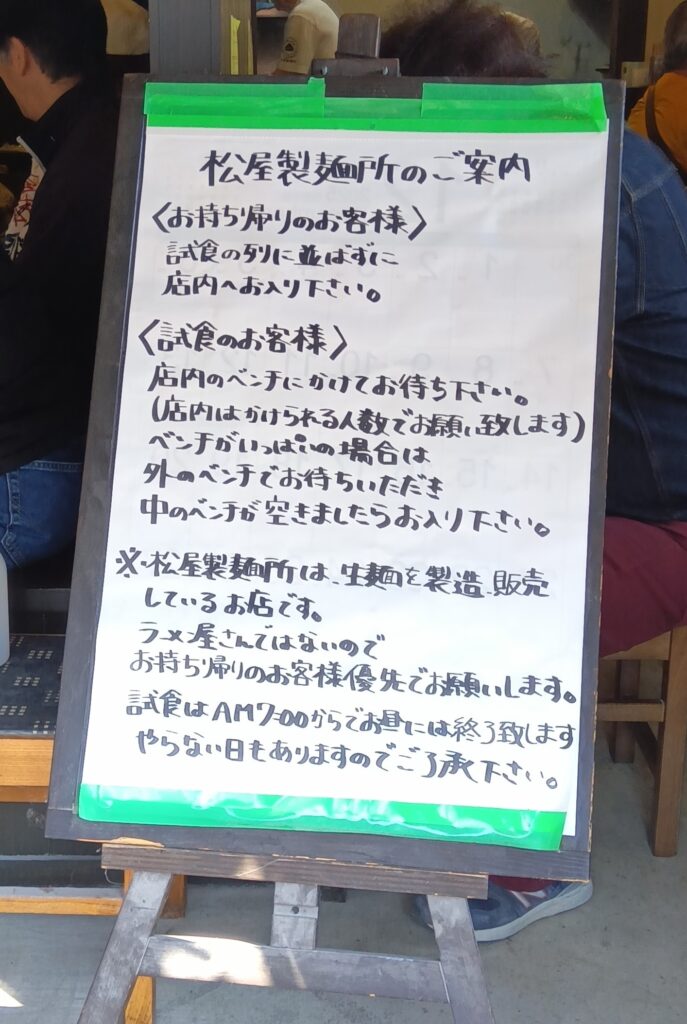 松屋製麺所のご案内
〈お持ち帰りのお客様〉
試食の列に並ばずに
店内へお入り下さい。
〈試食のお客様〉
店内のベンチにかけてお待ち下さい。
(店内はかけられる人数でお願い致します)
ベンチがいっぱいの場合は
外のベンチでお待ちいただき
中のベンチが空きましたらお入り下さい。
※・松屋製麺所は、生麺を製造、販売
しているお店です。
ラーメン屋さんではないので
お持ち帰りのお客様優先でお願いします。
試食はAM7:00からでお昼には終了致します
やらない日もありますのでご了承下さい。